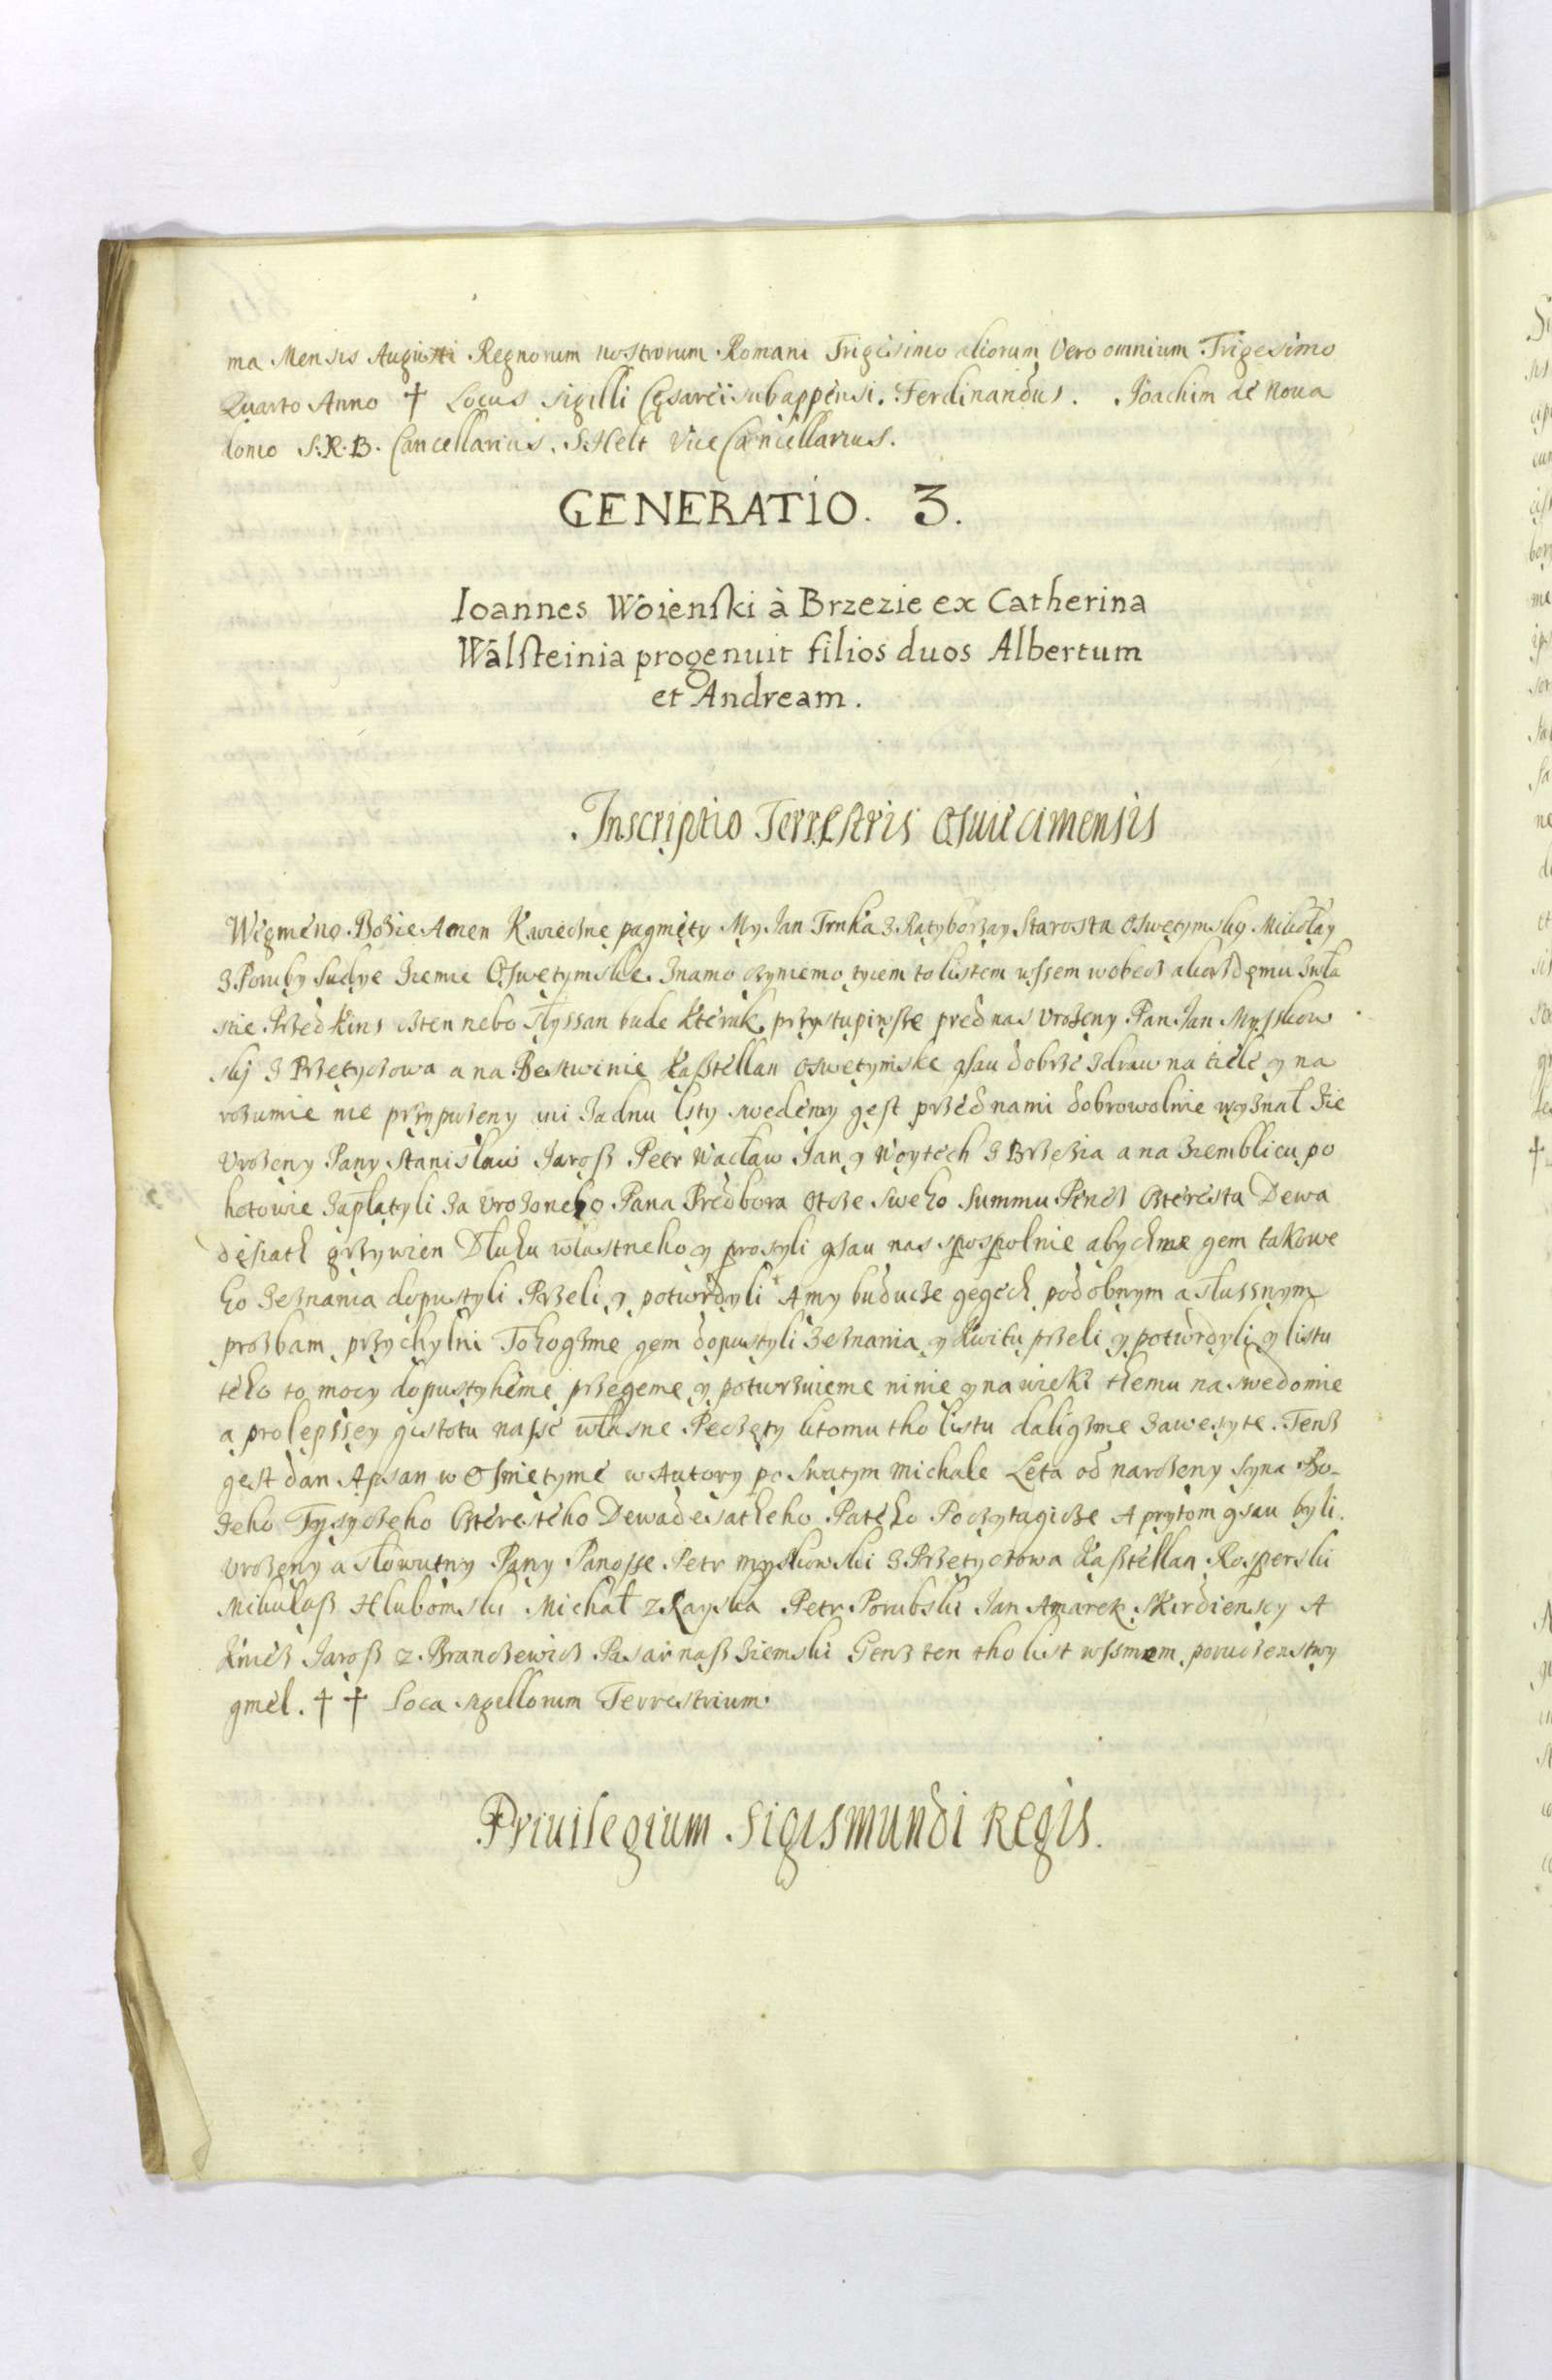 ma Mensis Augusti Regnorum nostrorum Romani Trigesimo aliorum Vero omnium Trigesimo
Quarto Anno † Locus Sigilli Cesarei subappensi. Ferdinandus. Joachim de Noua
domo S. R. B. Cancellarius. S. Helt Vice Cancellarius.
GENERATIO. 3.
Ioannes Woienski à Brzezie ex Catherina
Walsteinia progenuit filios duos Albertum
et Andream.
Inscriptio Terrestris Osuiecimensis
Wiegmeno Bozie Amen Kwieczne pagmęty My Jan Trnka z Ratyborzay Starosta Oswętymsky Mikołay
z Poruby Sudye Ziemie Oswetymske. Znamo czyniemo tyiem to listem wssem wobecz a kozdęmu zwła
scie Przed kims czten nebo słyssan bude kterak przystupiwsze pred nas Vrozeny Pan Jan Myszkow
skj z Przetyczowa a na Bestwinie Kasztellan Oswetymske gsau dobrze zdraw na tiele y na
rozumie nie przypuzeny ani zadnu lsty swedeny gest przed nami dobrowolnie wyznał zie
Vrozeny Pany Stanisław Jarosz Petr Wacław Jan y Woytech z Brzezia a na Ziemblicu po
hotowie zaplatyli za Vrozoneho Pana Predbora Otcze sweho Summu Penez cztérista Dewa
dęsiath grzywien Dluhu własstneho y prosyli gsau nas spospolnie abychme gem takowe
ho zeznania dopustyli Przeli y potwrdyli A my buducze gegich podobnym a słussnym
prozbam przychylni Tohogzme gem dopustyli zeznania y kwitu przeli y potwrdyli y listu
teho to mocy dopustyhéme przegeme y potwrzuieme ninie y na wieki themu na swedomie
a prolepssey gistotu nasse własne Peczęty k tomu tho listu daligzme zawesyte. Tenz
gest dan Apsan w Osmietyme w Autery po Swatym Michale Leta od narozeny Syna Bo-
zeho Tysyczeho Czterésteho Dewadesatheho Patého Poczytagicze A prytom gsau byli
Vrozeny a słowutny Pany Panosse Petr Myszkowski z Przetyczowa Kasztellan Rosperski
Mikulasz Hlubomski Michał z Rayska Petr Porubski Jan Amarek Skidziensky A
Knéz Jarosz z Branczewicz Pasarnasz Ziemski Genz ten tho list w ssmem poruczenstwy
gmél. † † Loca sigellorum Terrestrium.
Priuilegium Sigismundi Regis.